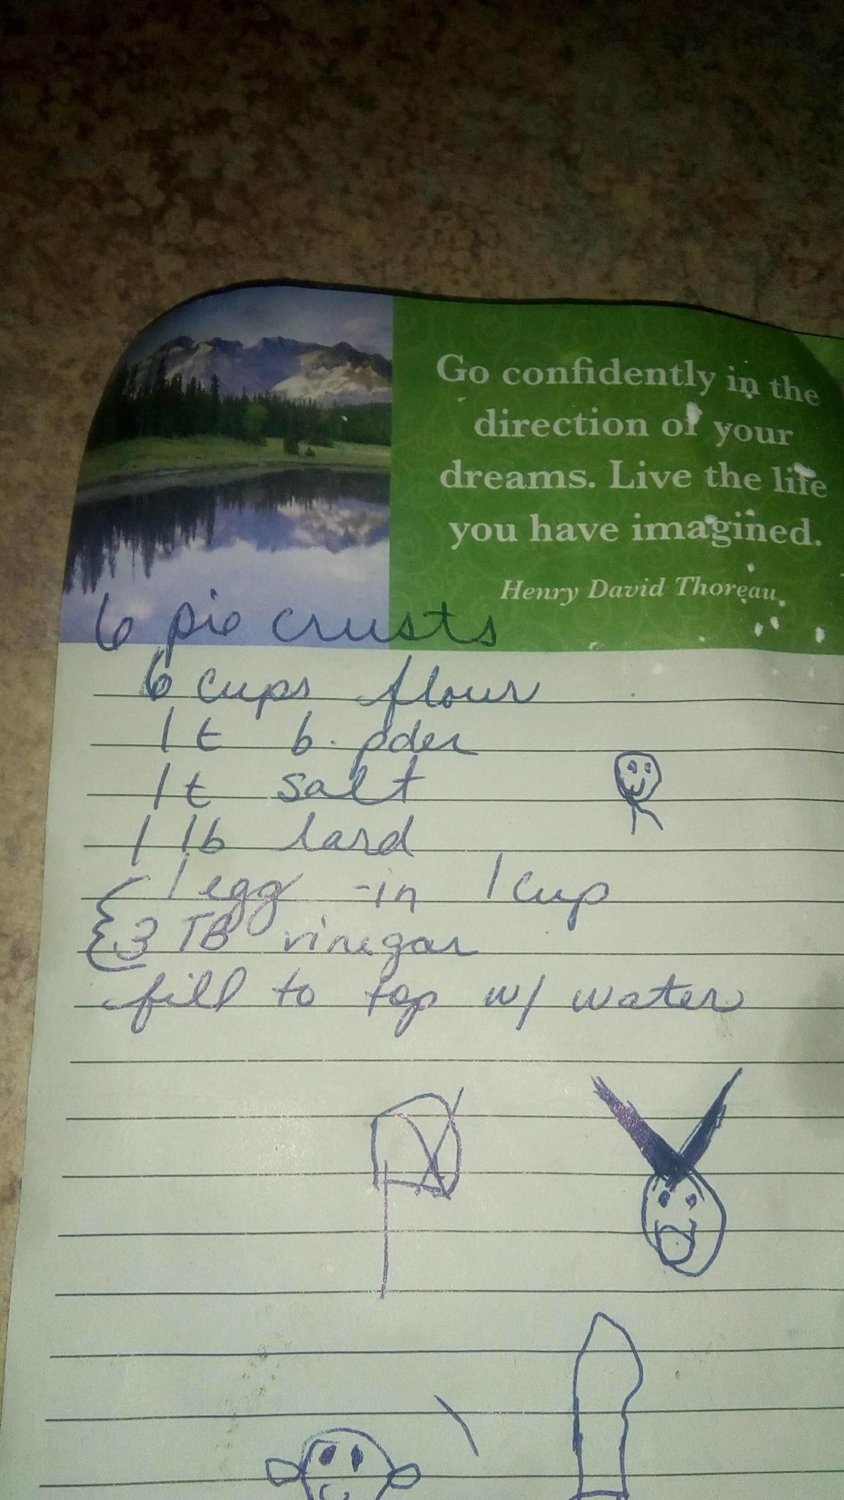 Go confidently in the
direction of your
dreams. Live the life
you have imagined.
Henry David Thoreau
6 pie crusts
6 cups flour
1 t b. pder
1 t salt
1 lb lard
1 egg - in 1 cup
3 TB vinegar
fill to top w/ water